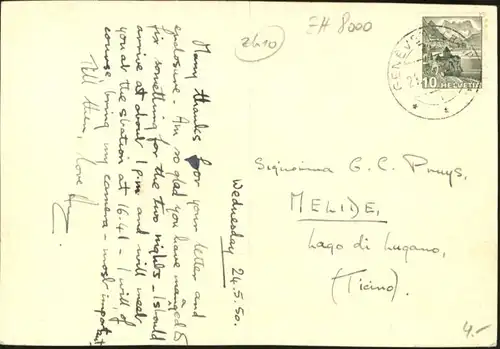 2610
SH 8000
GENEVE
10
HELVETIA
Wednesday 24.5.50.
Many thanks for your letter and
enclosure. Am so glad you have managed
for something for the two nights - I should
arrive at about 1 p.m and will meet
you at the station at 16.41 - I will, of
course, bring my camera - most important
Till then, love
Signorina G. C. Pruys,
MELIDE,
Lago di Lugano,
(Ticino).
4.-